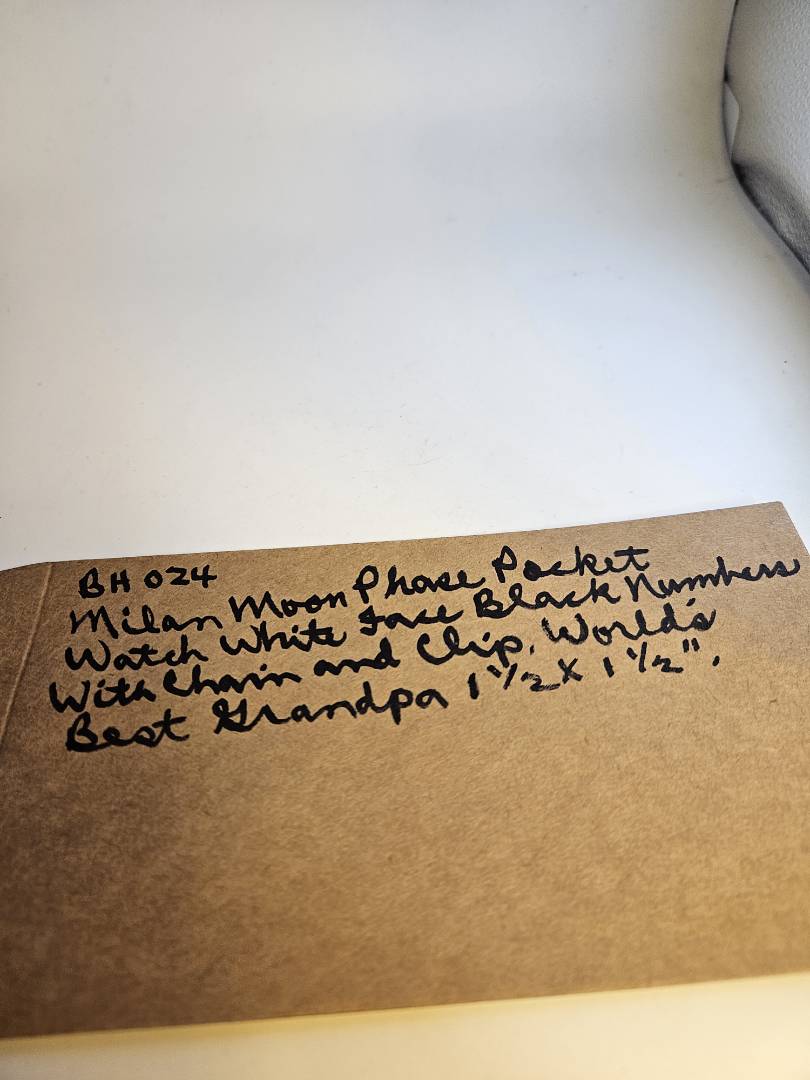 BH 024
Milan Moon Phase Pocket
Watch White Face Black Numbers
With Chain and Clip. World's
Best Grandpa 1 1/2 X 1 1/2".